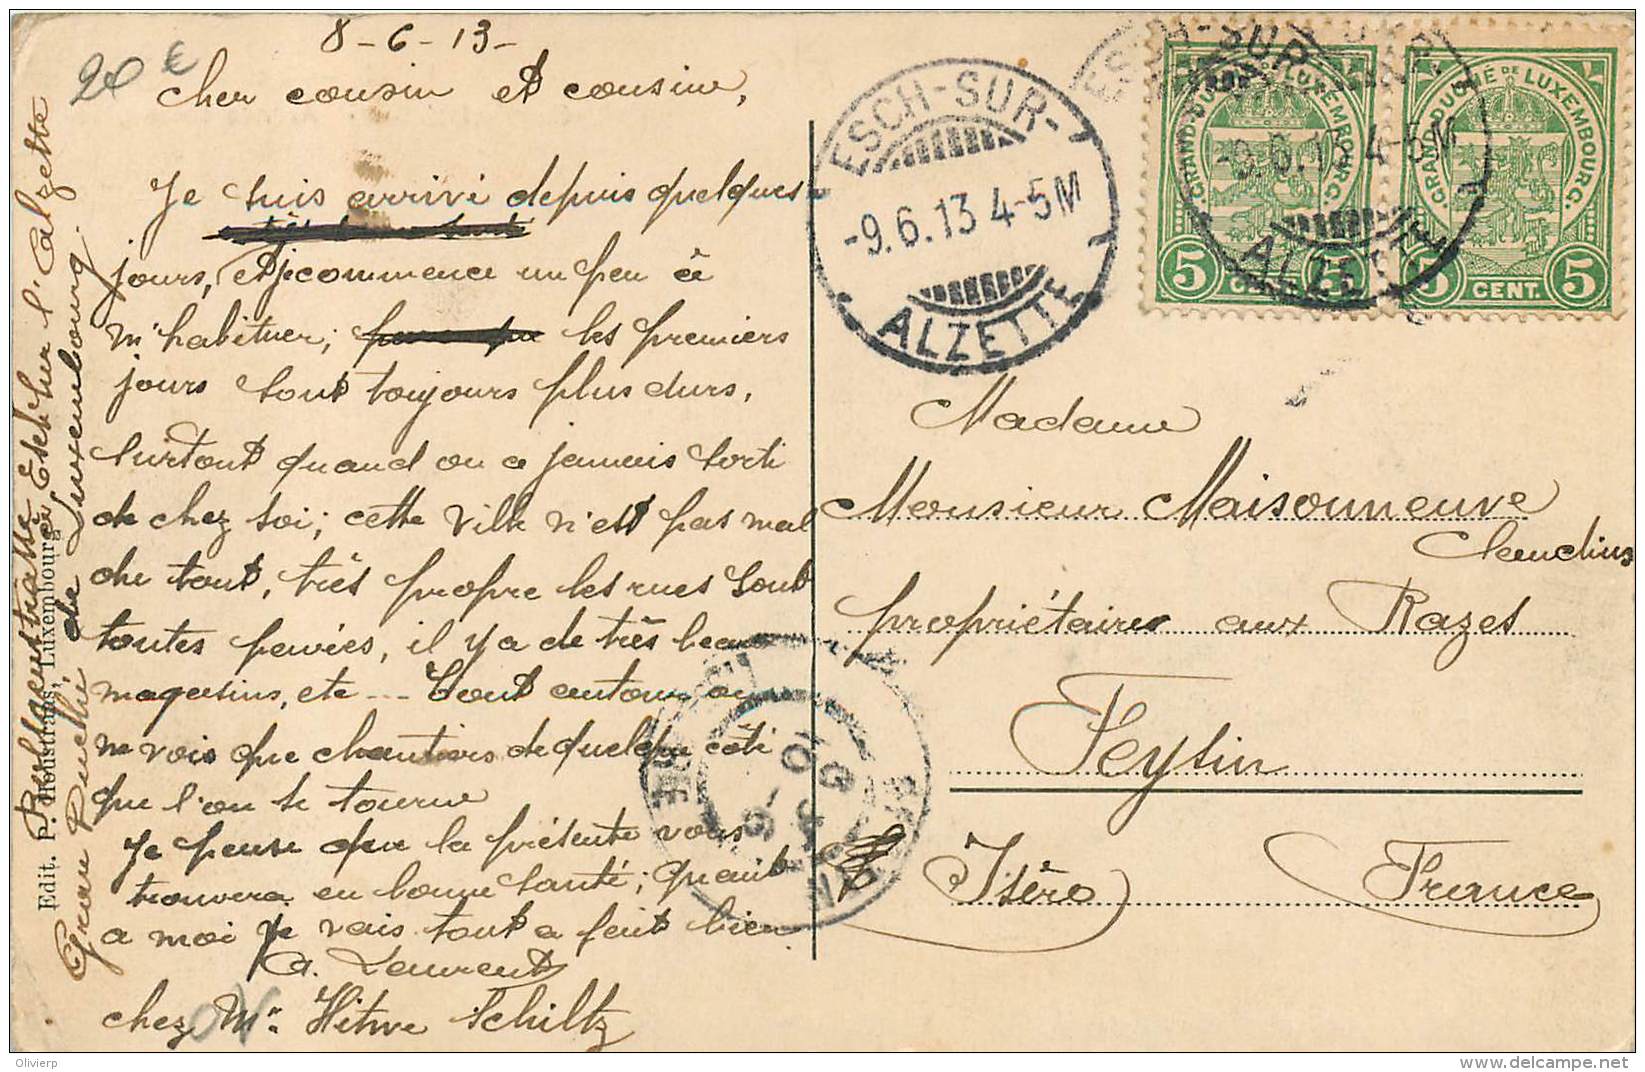 8-6-13-
20 €
Cher cousin et cousine,
Je suis arrivé depuis quelques
jours, et je commence un peu à
m'habituer; les premiers
jours sont toujours plus durs,
surtout quand on a jamais sorti
de chez soi; cette ville n'est pas mal
du tout, très propre les rues sont
toutes pavées, il y a de très beaux
magasins, etc... Tout autour on
ne vois que chantiers de quelque côté
que l'on se tourne
Je pense que la présente vous
trouvera en bonne santé; quant
a moi je vais tout a fait bien
A. Laurent
chez Mr Schiltz
à Esch sur l'Alzette
Grand Duché de Luxembourg.
Edit. P. Houstraas, Luxembourg
ESCH-SUR-
-9.6.13 4-5M
ALZETTE
ESCH-SUR-
-9.6.13 4-5M
ALZETTE
GRAND-DUCHÉ DE LUXEMBOURG.
5 CENT. 5
GRAND-DUCHÉ DE LUXEMBOURG.
5 CENT. 5
Madame
Monsieur Maisonneuve
Claudius
propriétaire aux Razes
Feysin
Isère France
Olivierp
delcampe.net